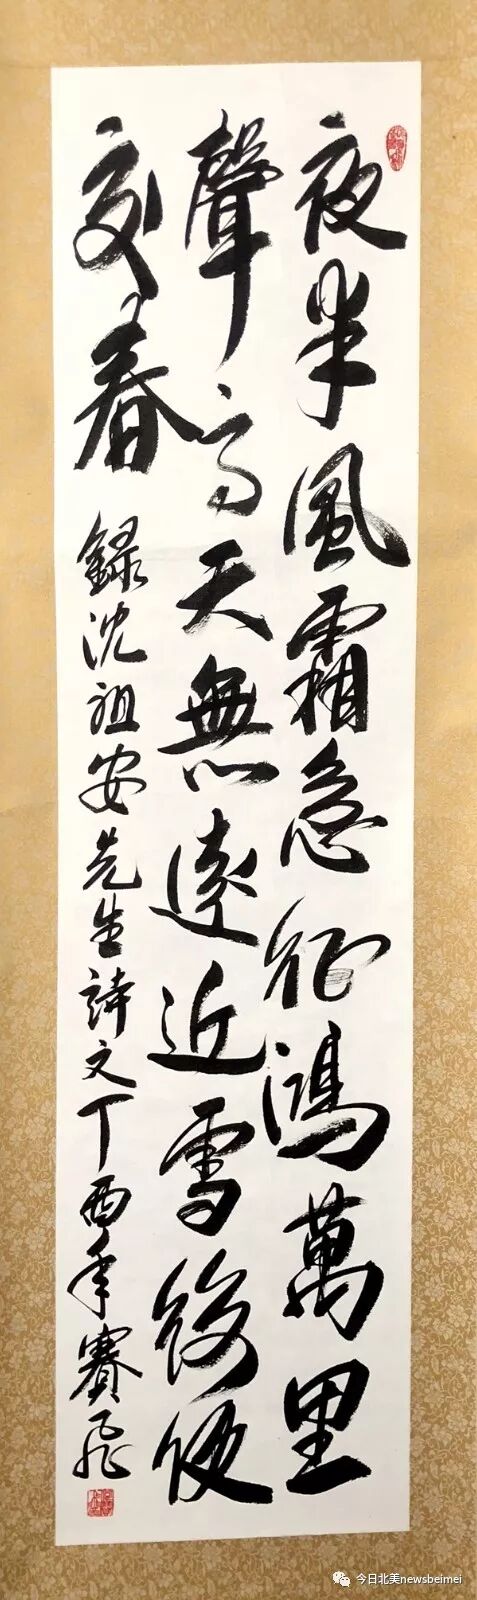 夜半風霜急征鴻萬里
聲高天無遠近雪後便
交春
錄沈祖安先生詩文丁酉年賽飛
今日北美newsbeimei